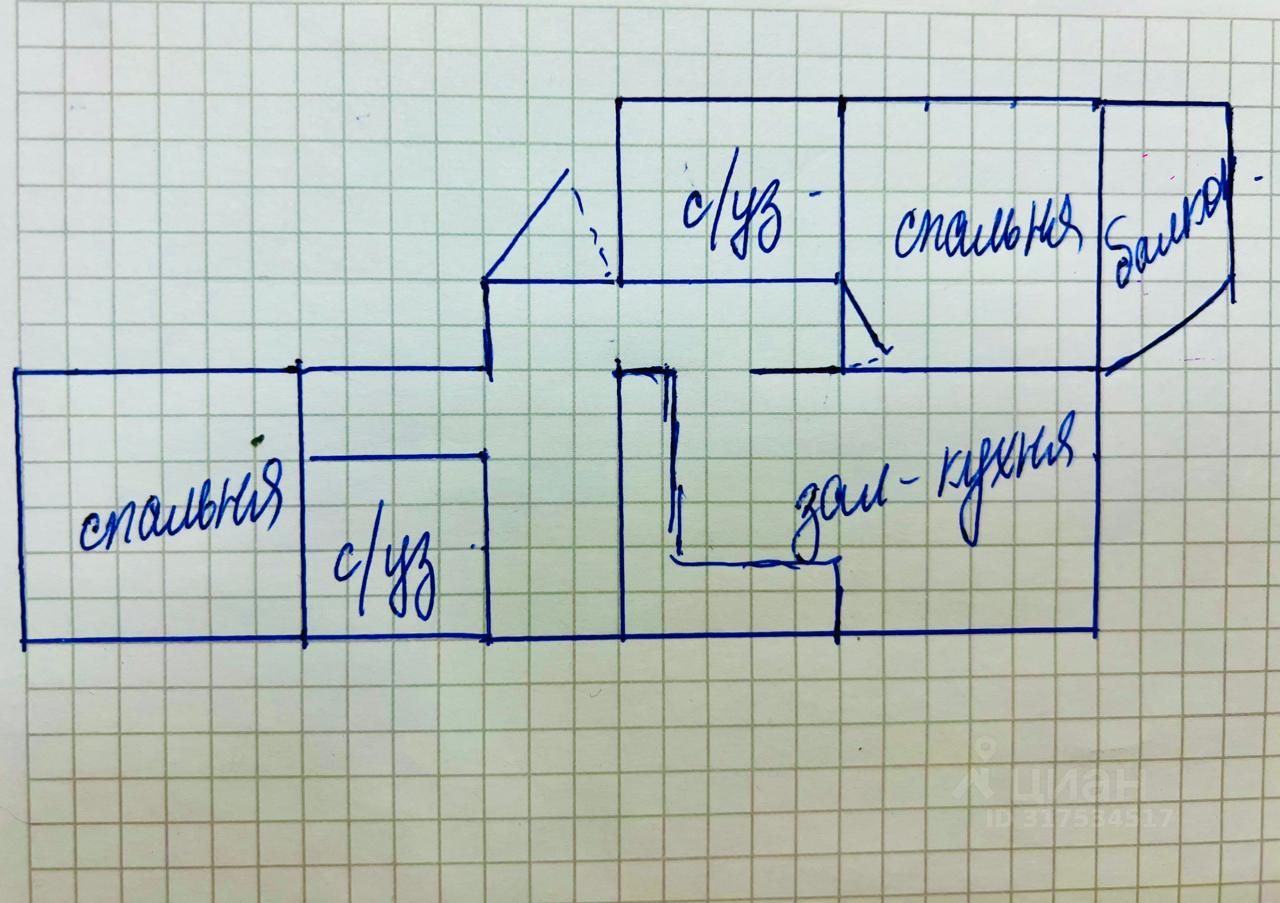 с/уз
спальня
балкон
спальня
с/уз
зал-кухня
циан
ID 317534517